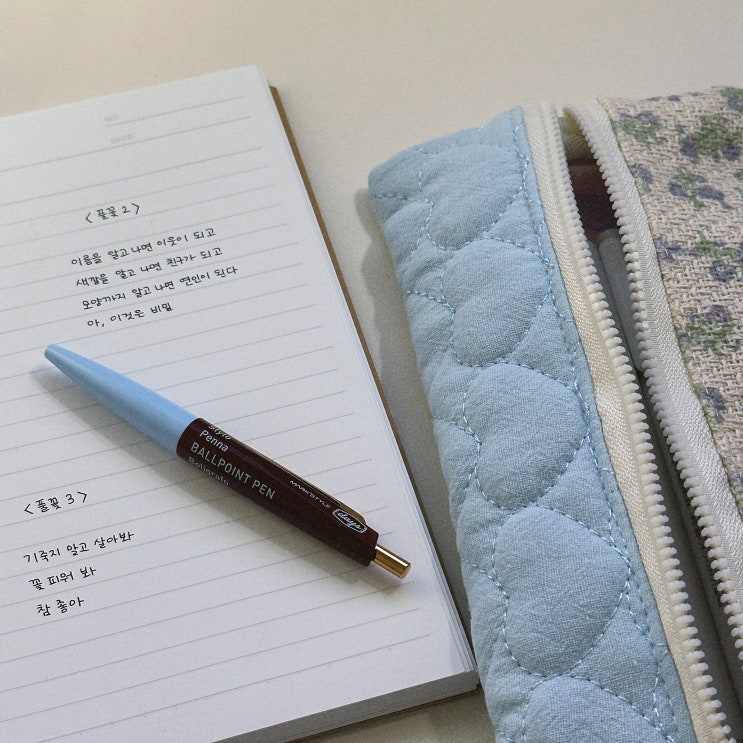 NO
DATE
< 풀꽃 2 >
이름을 알고 나면 이웃이 되고
색깔을 알고 나면 친구가 되고
모양까지 알고 나면 연인이 된다
아, 이것은 비밀
Stylo
Penna
BALLPOINT PEN
Boligrafo
days
< 풀꽃 3 >
기죽지 말고 살아봐
꽃 피워 봐
참 좋아